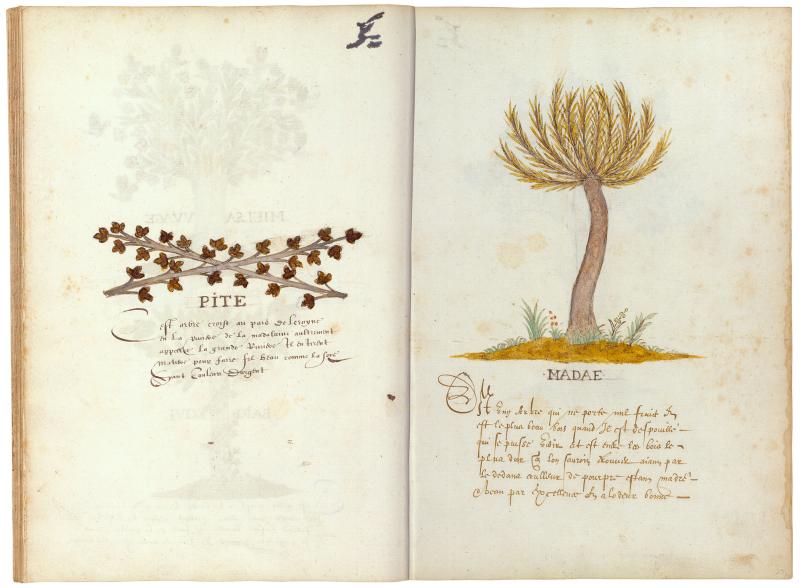 PITE
Cest arbre croist au païs de
en la Riviere de la madalaine autrement
appellé la grande Riviere Il en tirent
matiere pour faire fil beau comme la soye
Ayant Couleur Dargent
MADAE
Est Ung Arbre qui ne porte nul fruit Il
est le plus beau bois quand Il est despouillé
qui se puisse voir et est entre les bois le
plus dur que lon sauroit trouver aiant par
le dedans coulleur de pourpre estant madré
beau par Excellence Il a lodeur bonne